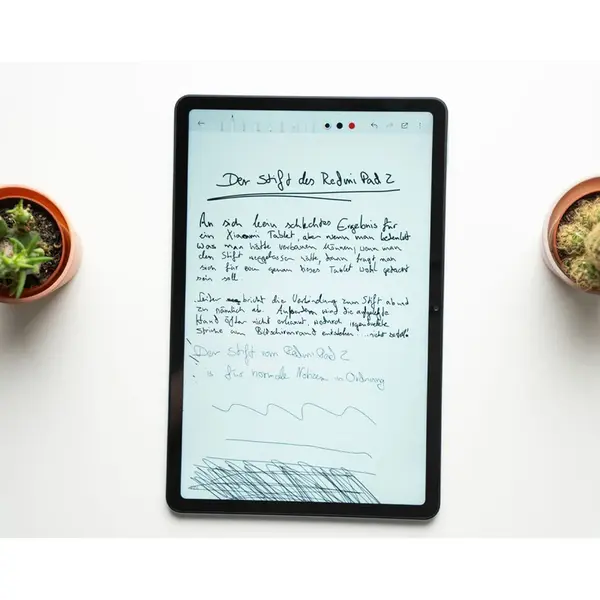 Der Stift des Redmi Pad 2
An sich kein schlechtes Ergebnis für
ein Xiaomi Tablet, aber wenn man bedenkt
was man hätte verbauen können, wenn man
den Stift ausgelassen hätte, dann fragt man
sich für was genau dieses Tablet wohl gedacht
sein soll
Leider bricht die Verbindung zum Stift ab und
zu nämlich ab. Außerdem wird die aufgelegte
Hand öfter nicht erkannt, wodurch
Striche am Bildschirmrand entstehen! nicht
Der Stift vom Redmi Pad 2
is für normale Notizen in Ordnung